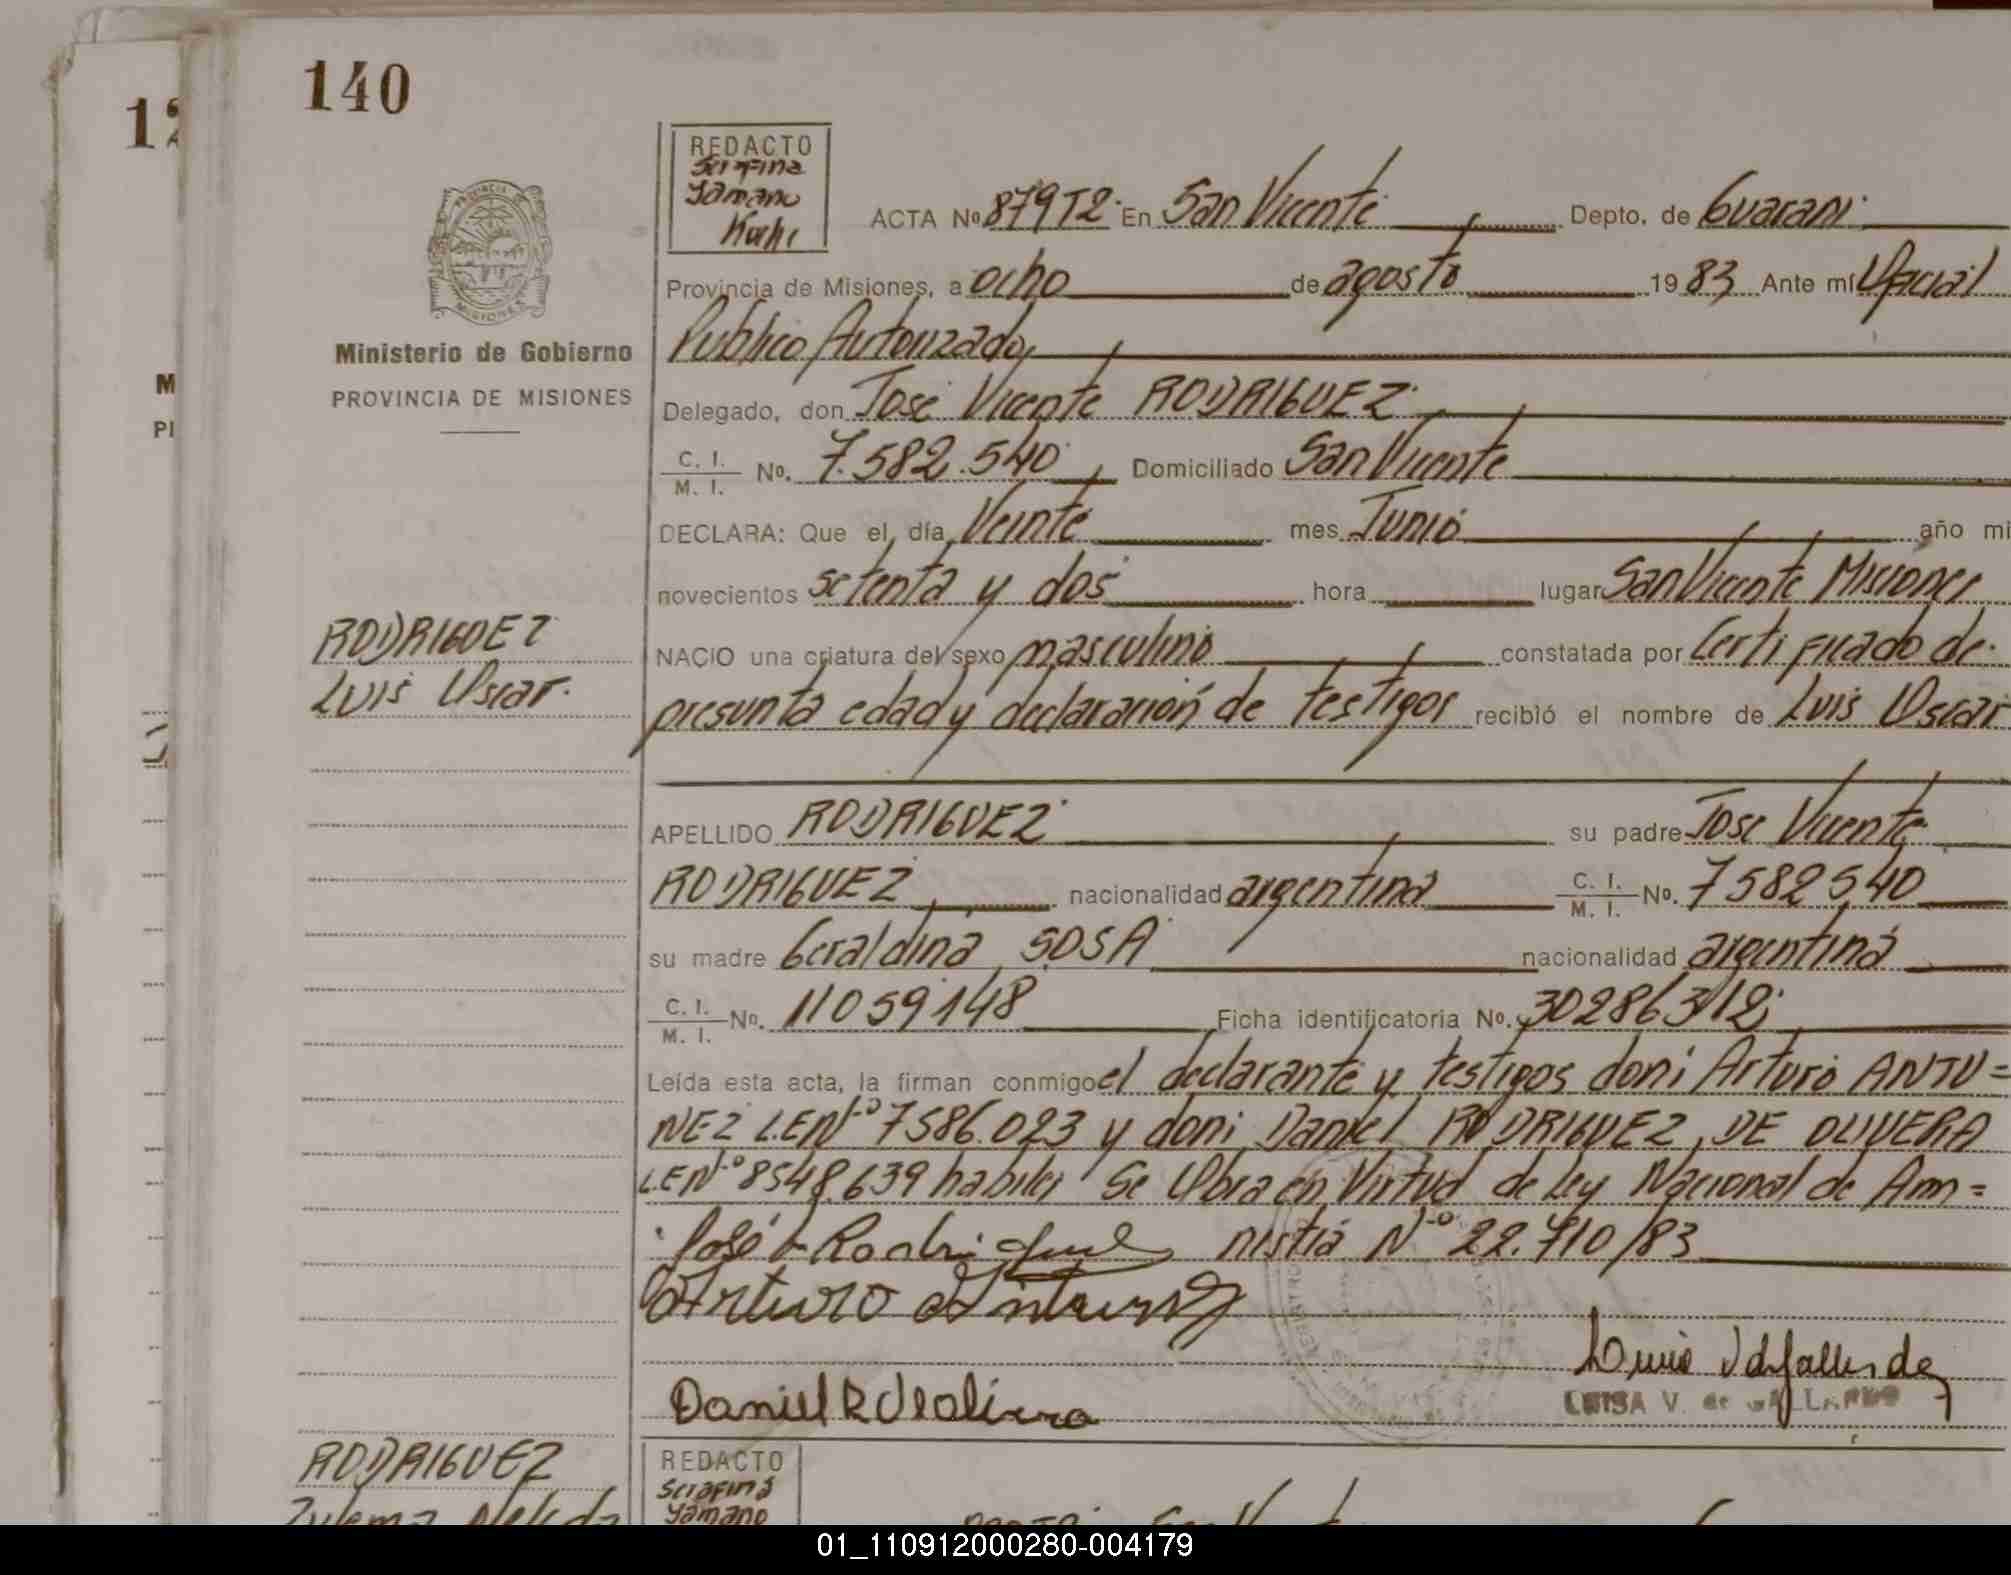 140
12
REDACTO
Serafina
Yamano
ACTA No 879T2. En San Vicente Depto. de Guarani
Provincia de Misiones, a ocho de agosto 1983 Ante mí Oficial
Ministerio de Gobierno
Publico Autorizado,
PROVINCIA DE MISIONES
M
PI
Delegado, don José Vicente RODRIGUEZ
C. I.
M. I. No. 7.582.540 Domiciliado San Vicente
DECLARA: Que el día Veinte mes Junio año mi
novecientos setenta y dos hora lugar San Vicente Misiones
RODRIGUEZ
Luis Oscar.
NACIO una criatura del sexo masculino constatada por Certificado de
presunta edad y declaración de testigos recibió el nombre de Luis Oscar
APELLIDO RODRIGUEZ su padre Jose Vicente
RODRIGUEZ nacionalidad argentina C. I. M. I. No. 7582540
su madre Geraldina SOSA nacionalidad argentina
C. I. M. I. No. 11059148 Ficha identificatoria No. 302863/12
Leída esta acta, la firman conmigo el declarante y testigos don: Arturo ANTU=
NEZ L.E Nº 7586.023 y don: Daniel RODRIGUEZ DE OLIVERA
L.E Nº 8548.639 habiles Se Obra en Virtud de Ley Nacional de Am=
José V Rodriguez nistia Nº 22.710/83
Arturo Antunez
Daniel R de olivera
LUISA V. de GALLARDO
RODRIGUEZ
Zulema Nelida
REDACTO
Serafina
Yamano
01_110912000280-004179